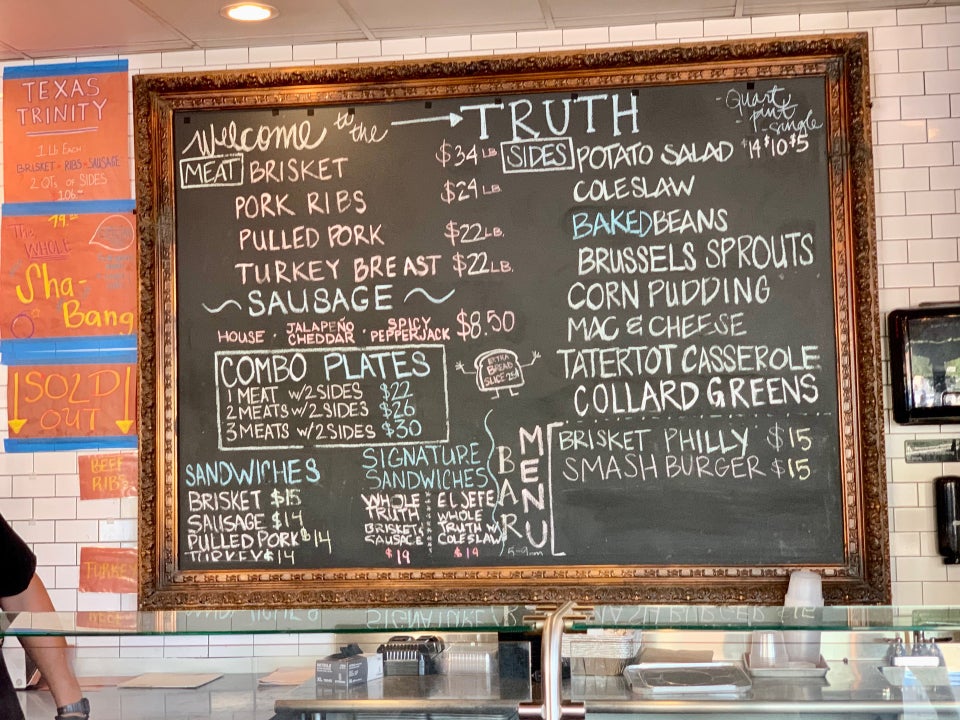 TEXAS
TRINITY
1 Lb Each
BRISKET · RIBS · SAUSAGE
2 QTS OF SIDES
106.
79.
The
WHOLE
Sha-
Bang
SOLD
OUT
BEEF
RIB
TURKEY
Welcome to the → TRUTH
- Quart
- pint
- single
MEAT BRISKET $34 LB
PORK RIBS $24 LB.
PULLED PORK $22 LB.
TURKEY BREAST $22 LB.
~ SAUSAGE ~
HOUSE · JALAPEÑO CHEDDAR · SPICY PEPPERJACK $8.50
COMBO PLATES
1 MEAT W/2 SIDES $22
2 MEATS W/2 SIDES $26
3 MEATS W/2 SIDES $30
EXTRA
BREAD
SLICE 25¢
SANDWICHES
BRISKET $15
SAUSAGE $14
PULLED PORK $14
TURKEY $14
SIGNATURE
SANDWICHES
WHOLE
TRUTH
BRISKET &
SAUSAGE
$19
EL JEFE
WHOLE
TRUTH W/
COLESLAW
$19
SIDES POTATO SALAD $14 $10 $5
COLESLAW
BAKED BEANS
BRUSSELS SPROUTS
CORN PUDDING
MAC & CHEESE
TATERTOT CASSEROLE
COLLARD GREENS
BAR
MENU
5-9pm
BRISKET PHILLY $15
SMASH BURGER $15